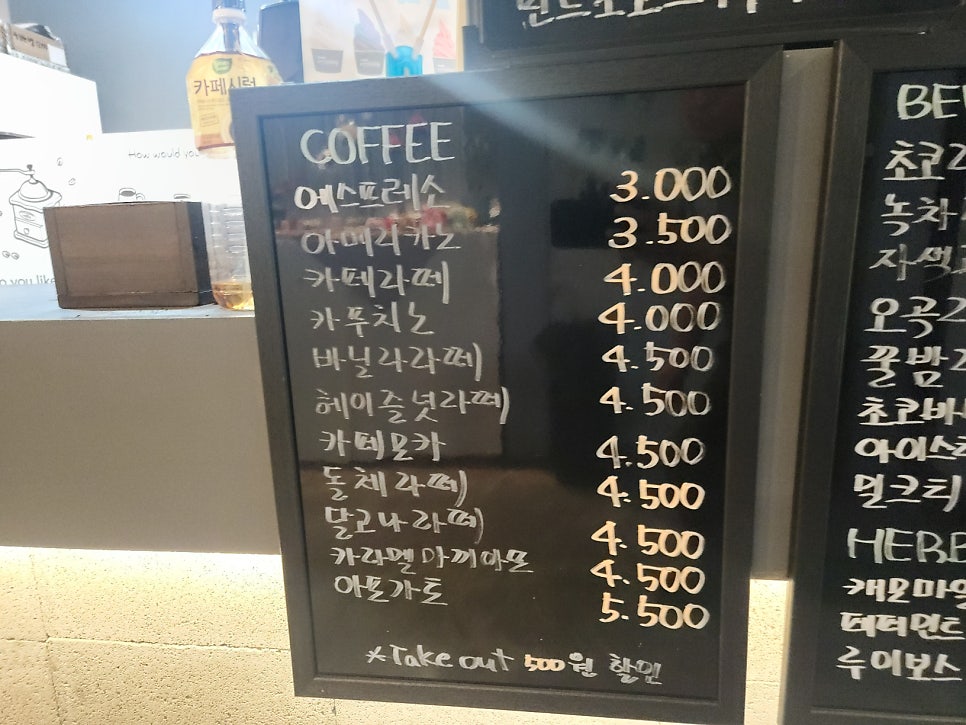 카페시럽
How would you
o you like
COFFEE
에스프레소 3.000
아메리카노 3.500
카페라떼 4.000
카푸치노 4.000
바닐라라떼 4.500
헤이즐넛라떼 4.500
카페모카 4.500
돌체라떼 4.500
달고나라떼 4.500
카라멜마끼아또 4.500
아포가토 5.500
*Take out 500원 할인
BE
초코
녹차
자색
오곡
꿀밤
초코바
아이스
밀크티
HERB
캐모마일
페퍼민트
루이보스